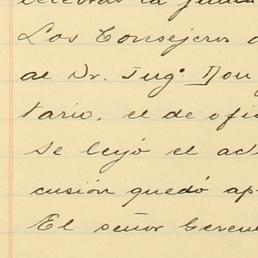 celebrar la
Los Consejeros
al Dr. Ing. Don
tario, el de ofi
Se leyó el act
cusión quedó ap
El señor Geren